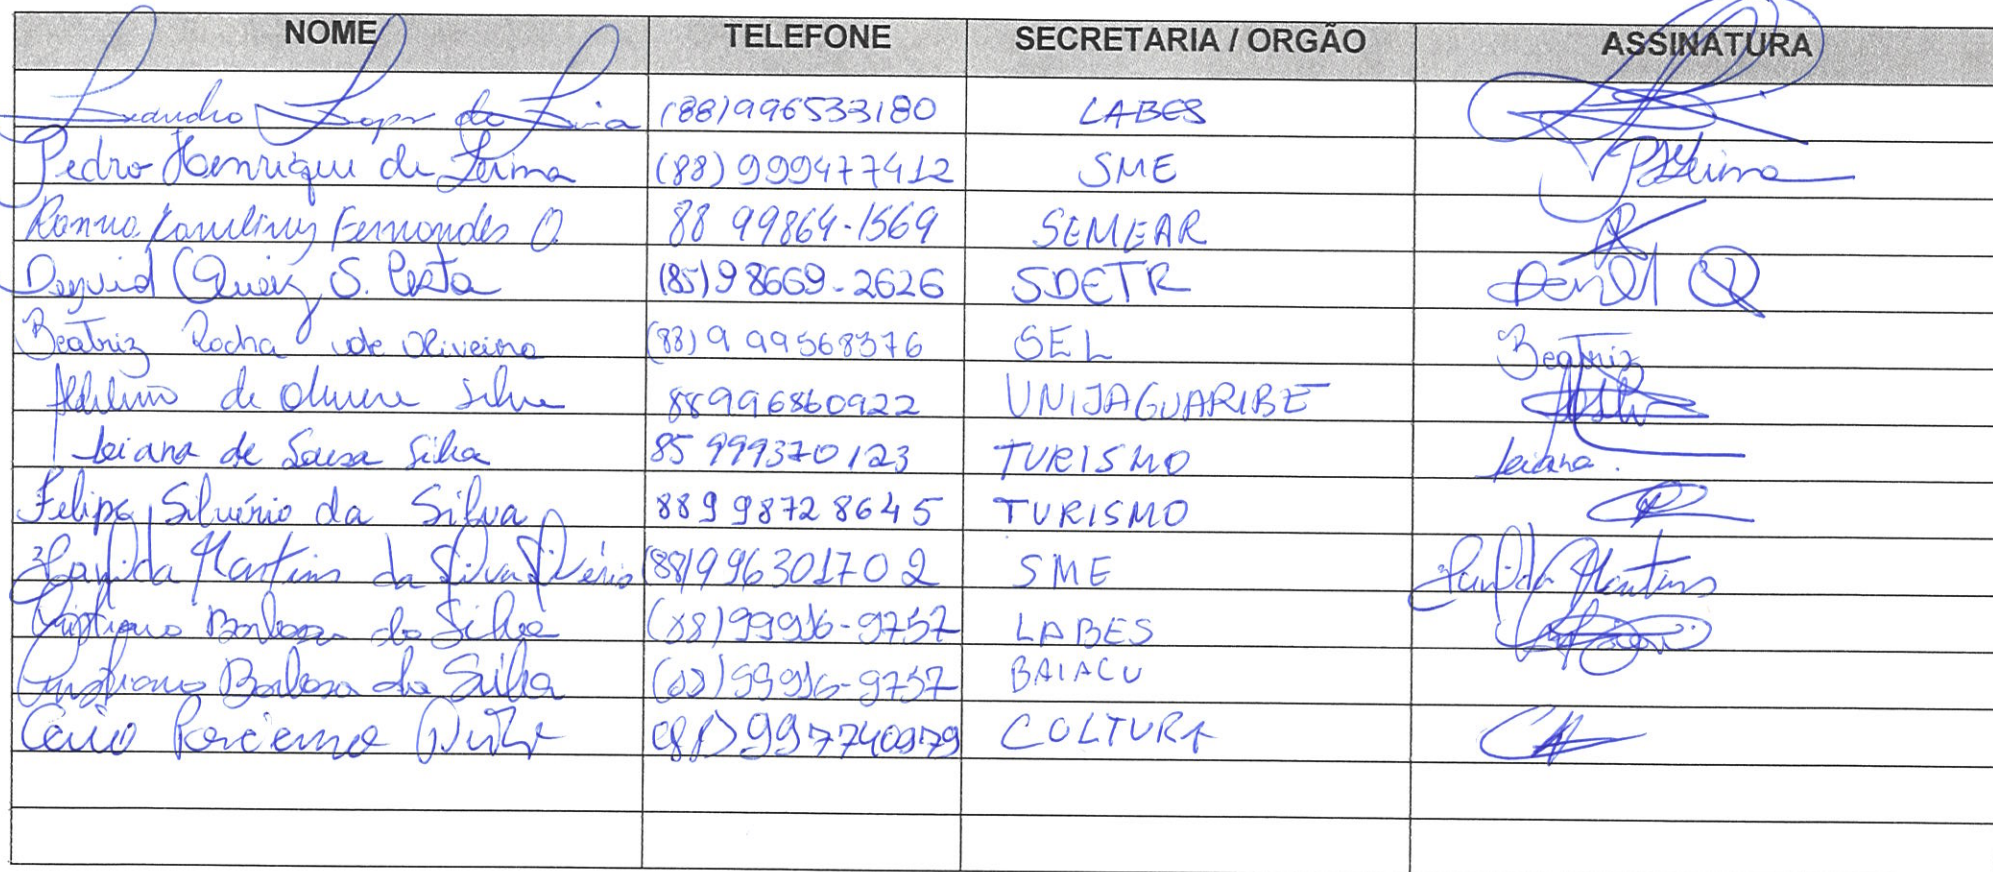 NOME TELEFONE SECRETARIA / ORGÃO ASSINATURA
Leandro Lopes de Lima (88)996533180 LABES
Pedro Henrique de Leima (88) 999477412 SME PHLeima
Fernandes O. 88 99864-1569 SEMEAR
Deyvid Queiz S. Costa (85)98669-2626 SDETR
Beatriz Rocha de Oliveira (88) 9 99568376 SEL Beatriz
de Silva 88996860922 UNIJAGUARIBE
Leiana de Sousa Silva 85 999370123 TURISMO Leiana.
Felipe Silvério da Silva 889 9872 8645 TURISMO
Martins da Silva Silvério (88)996301702 SME Martins
Cristiano Barbosa da Silva (88)99916-9757 LABES
Cristiano Barbosa da Silva (88)99916-9757 BAIACU
Caio 997740979 COLTURA